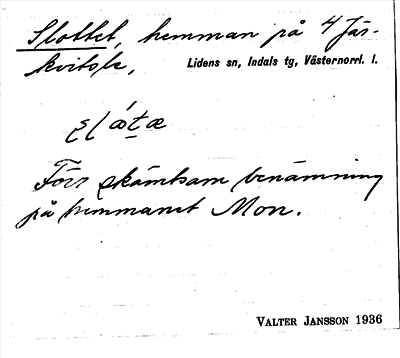 Slottet, hemman på 4 Järkvitsle,
Lidens sn, Indals tg, Västernorrl. l.
Förr skämtsam benämning
på hemmanet Mon.
VALTER JANSSON 1936